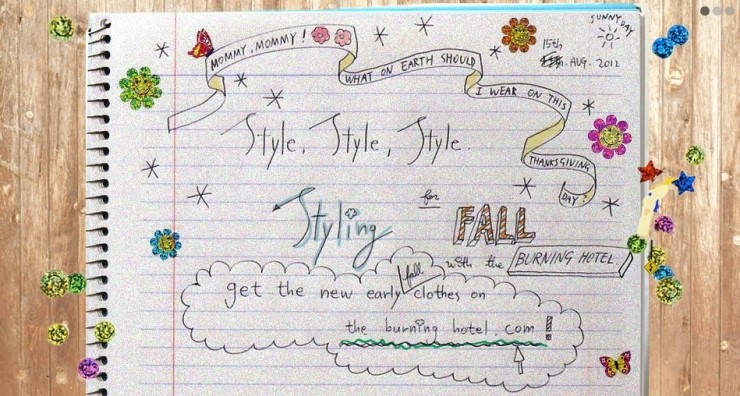 SUNNY DAY
15th
AUG. 2012
MOMMY, MOMMY!
WHAT ON EARTH SHOULD
I WEAR ON THIS
THANKSGIVING
DAY?
Style, Style, Style.
Styling for FALL
with the BURNING HOTEL
get the new early fall clothes on
the burning hotel.com!